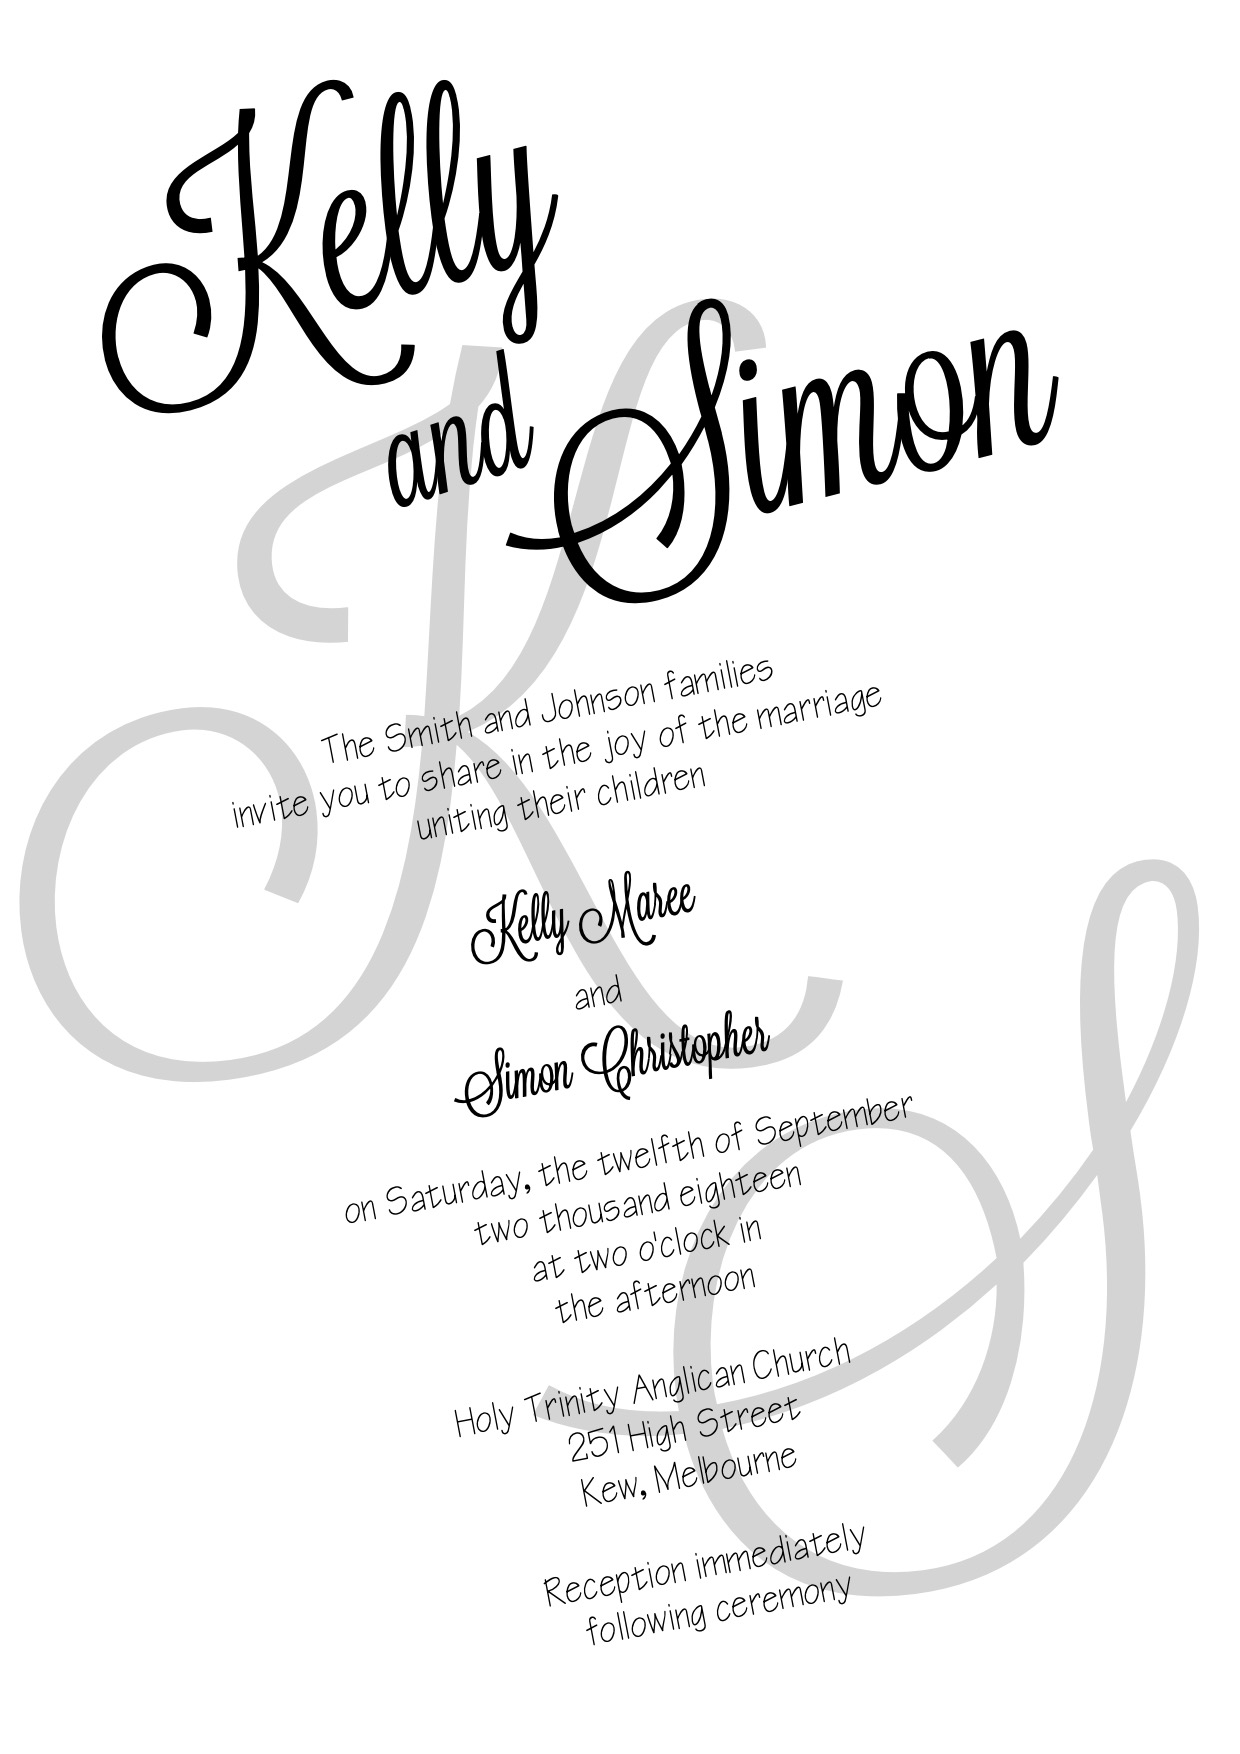 Kelly
and Simon
K
The Smith and Johnson families
invite you to share in the joy of the marriage
uniting their children
Kelly Maree
and
Simon Christopher
S
on Saturday, the twelfth of September
two thousand eighteen
at two o'clock in
the afternoon
Holy Trinity Anglican Church
251 High Street
Kew, Melbourne
Reception immediately
following ceremony